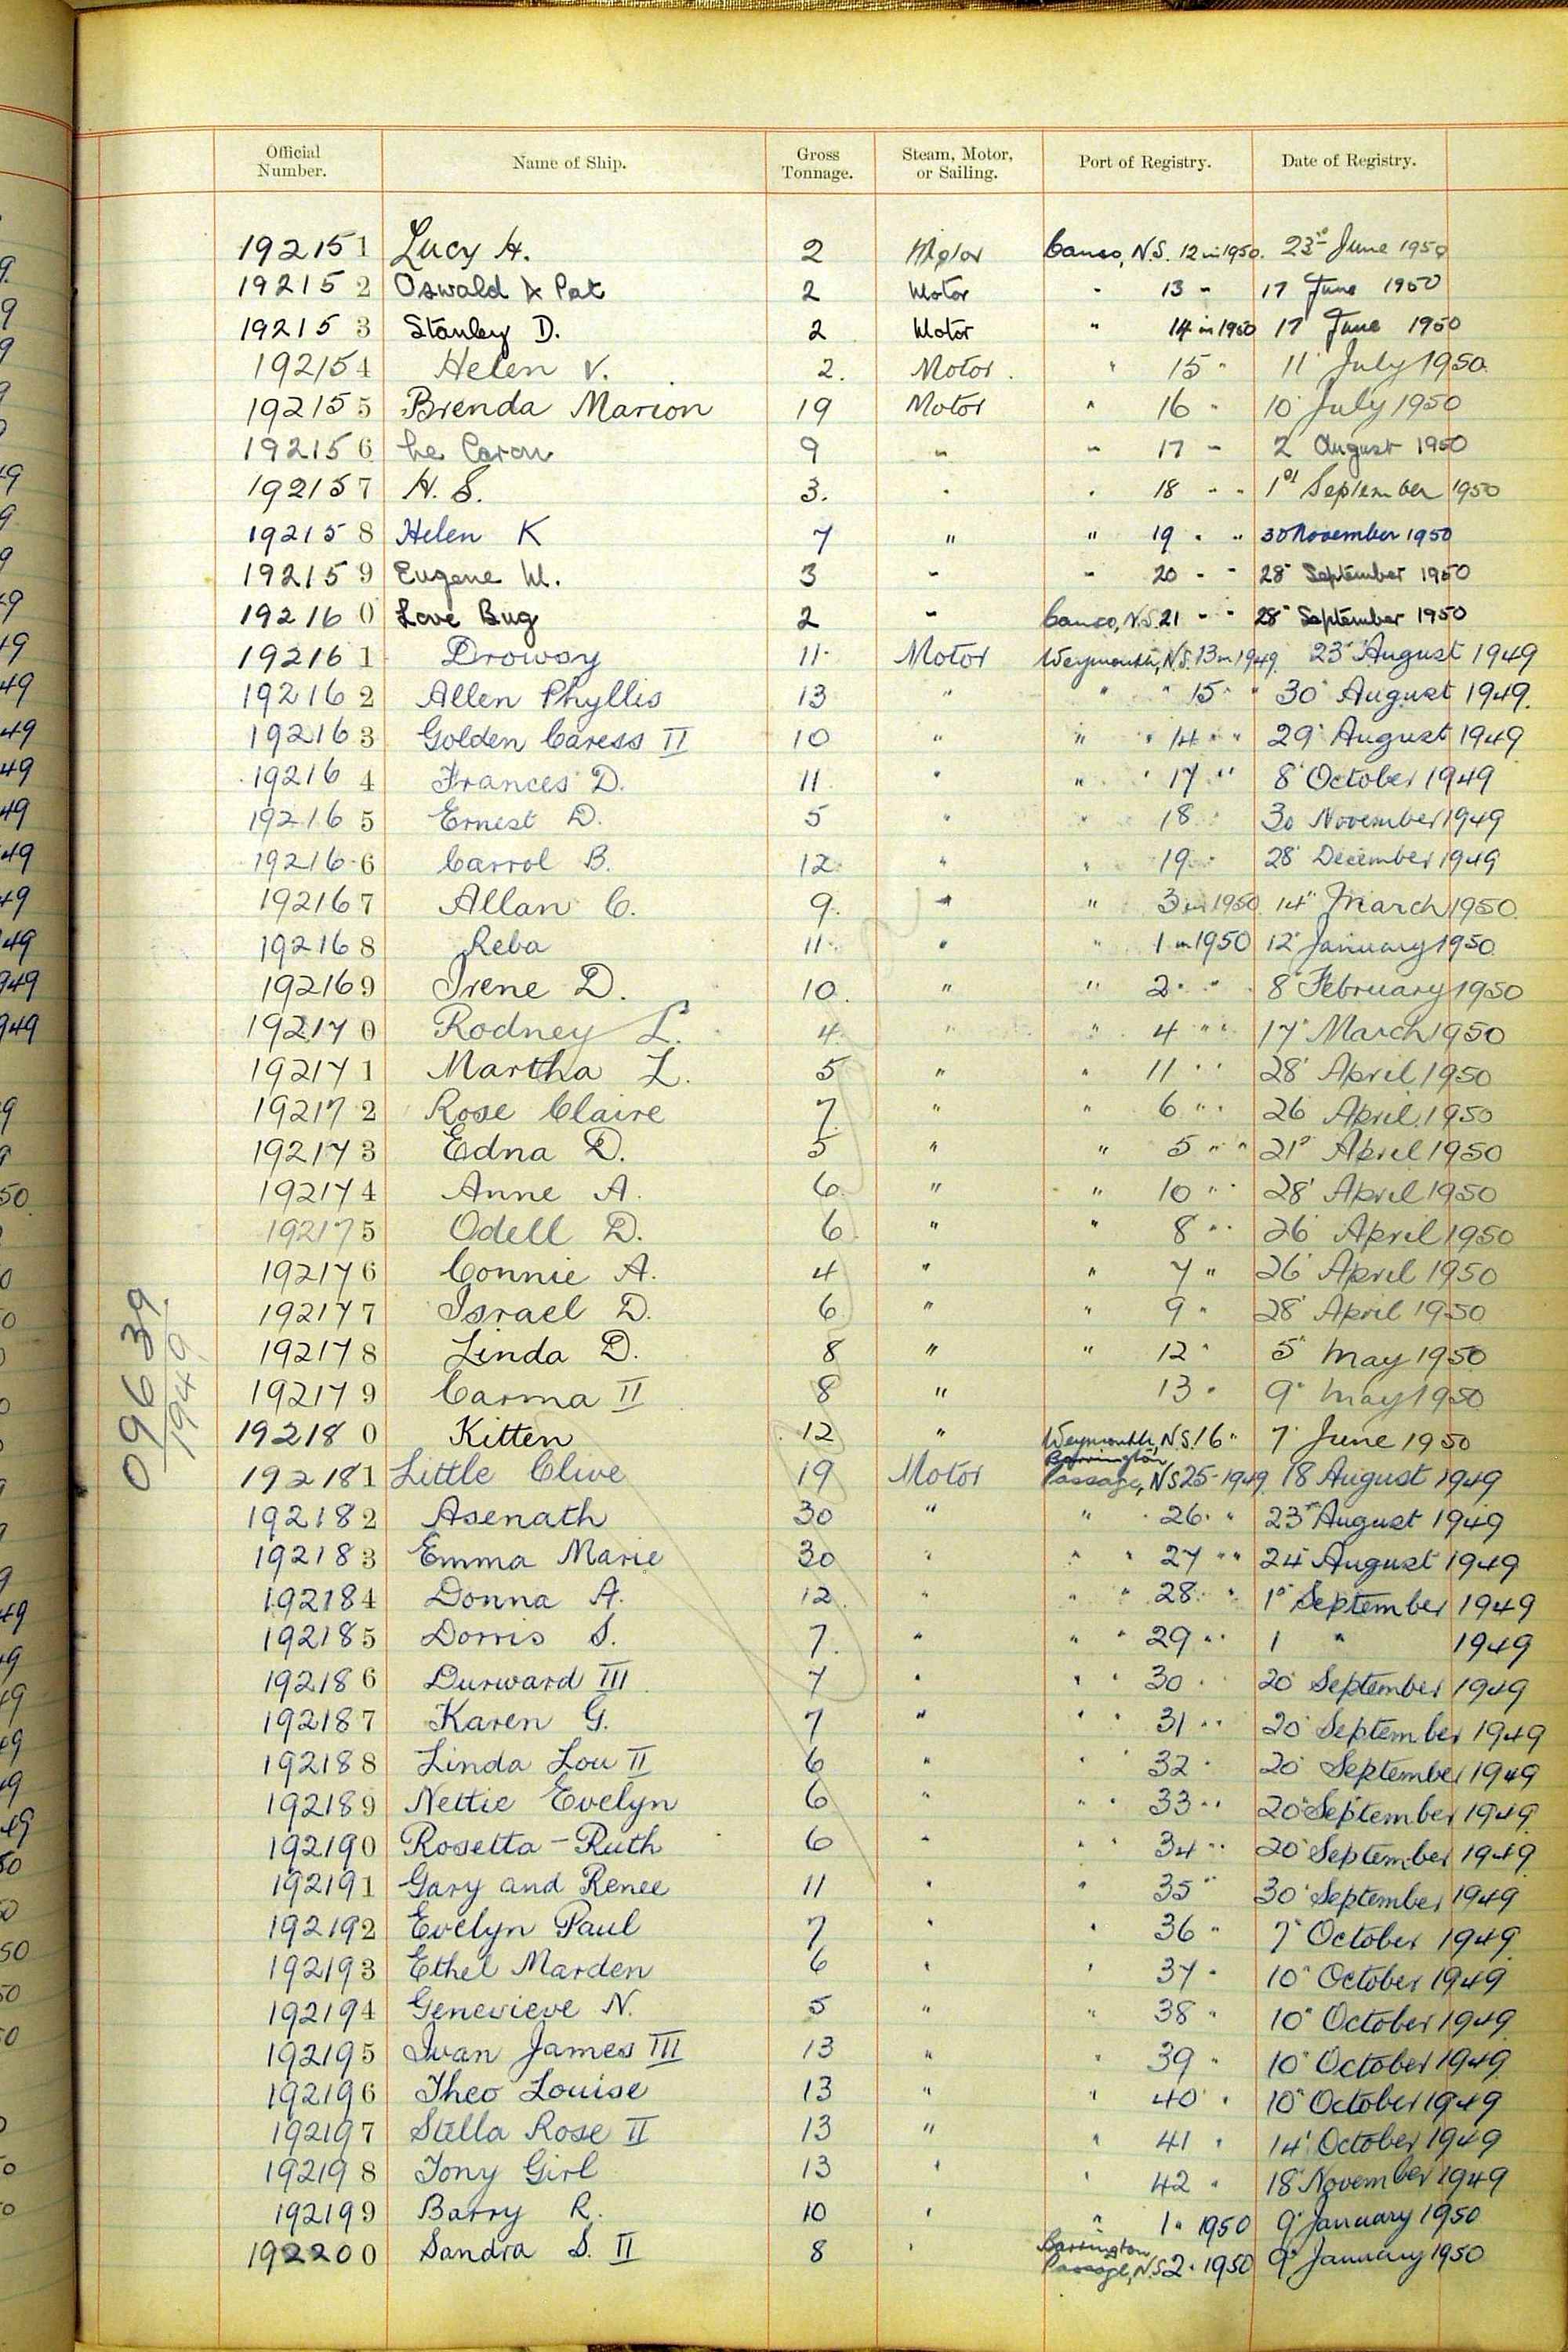 Official Number. Name of Ship. Gross Tonnage. Steam, Motor, or Sailing. Port of Registry. Date of Registry.
192151 Lucy H. 2 Motor Canso, N.S. 12 in 1950. 23rd June 1950
192152 Oswald & Pat 2 Motor " 13 " 17 June 1950
192153 Stanley D. 2 Motor " 14 in 1950 17 June 1950
192154 Helen V. 2. Motor. " 15 " 11" July 1950.
192155 Brenda Marion 19 Motor " 16 " 10" July 1950
192156 9 " " 17 " 2 August 1950
192157 H. S. 3. " " 18 " " 1st September 1950
192158 Helen K 7 " " 19 " " 30 November 1950
192159 Eugene M. 3 " " 20 " " 28" September 1950
192160 Love Bug 2 " Canso, N.S. 21 " " 28" September 1950
192161 11 Motor Weymouth, N.S. 13 in 1949 23" August 1949
192162 Allen Phyllis 13 " " " 15 " " 30" August 1949.
192163 Golden Caress II 10 " " " 14 " " 29" August 1949
192164 Frances D. 11 " " " 17 " " 8" October 1949
192165 Ernest D. 5 " " 18 " 30 November 1949
192166 Carrol B. 12 " " 19 " 28" December 1949
192167 Allan C. 9. " " 3 in 1950 14" March 1950.
192168 Reba 11 " " 1 in 1950 12" January 1950
192169 Irene D. 10. " " 2 " " 8" February 1950
192170 Rodney L. 4 " " 4 " " 17" March 1950
192171 Martha L. 5 " " 11 " " 28" April 1950
192172 Rose Claire 7 " " 6 " " 26 April 1950
192173 Edna D. 5 " " 5 " " 21st April 1950
192174 Anne A. 6 " " 10 " " 28" April 1950
192175 Odell D. 6 " " 8 " " 26" April 1950
192176 Connie A. 4 " " 7 " 26" April 1950
192177 Israel D. 6 " " 9 " 28" April 1950
192178 Linda D. 8 " " 12 " 5" May 1950
192179 Carma II 8 " 13 " 9" May 1950
192180 Kitten 12 " Weymouth, N.S. 16 " 7" June 1950
192181 Little Clive 19 Motor Barrington Passage, N.S. 25 - 1949. 18 August 1949
192182 Asenath 30 " " " 26 " " 23rd August 1949
192183 Emma Marie 30 " " " 27 " " 24" August 1949
192184 Donna A. 12. " " " 28 " " 1st September 1949
192185 Dorris S. 7. " " " 29 " " 1 " 1949
192186 Durward III 7 " " " 30 " 20" September 1949
192187 Karen G. 7 " " " 31 " " 20" September 1949
192188 Linda Lou II 6 " " " 32 " 20" September 1949
192189 Nettie Evelyn 6 " " " 33 " " 20" September 1949
192190 Rosetta-Ruth 6 " " " 34 " " 20" September 1949
192191 Gary and Renee 11 " " 35 " 30" September 1949
192192 Evelyn Paul 7 " " 36 " 7" October 1949
192193 Ethel Marden 6 " " 37 " 10" October 1949
192194 Genevieve N. 5 " " 38 " 10" October 1949
192195 Ivan James III 13 " " 39 " 10" October 1949
192196 Theo Louise 13 " " 40 " 10" October 1949
192197 Stella Rose II 13 " " 41 " 14" October 1949
192198 Tony Girl 13 " " 42 " 18" November 1949
192199 Barry R. 10 " " 1 " 1950 9" January 1950
192200 Sandra S. II 8 " Barrington Passage, N.S. 2 " 1950 9" January 1950
09639
1949